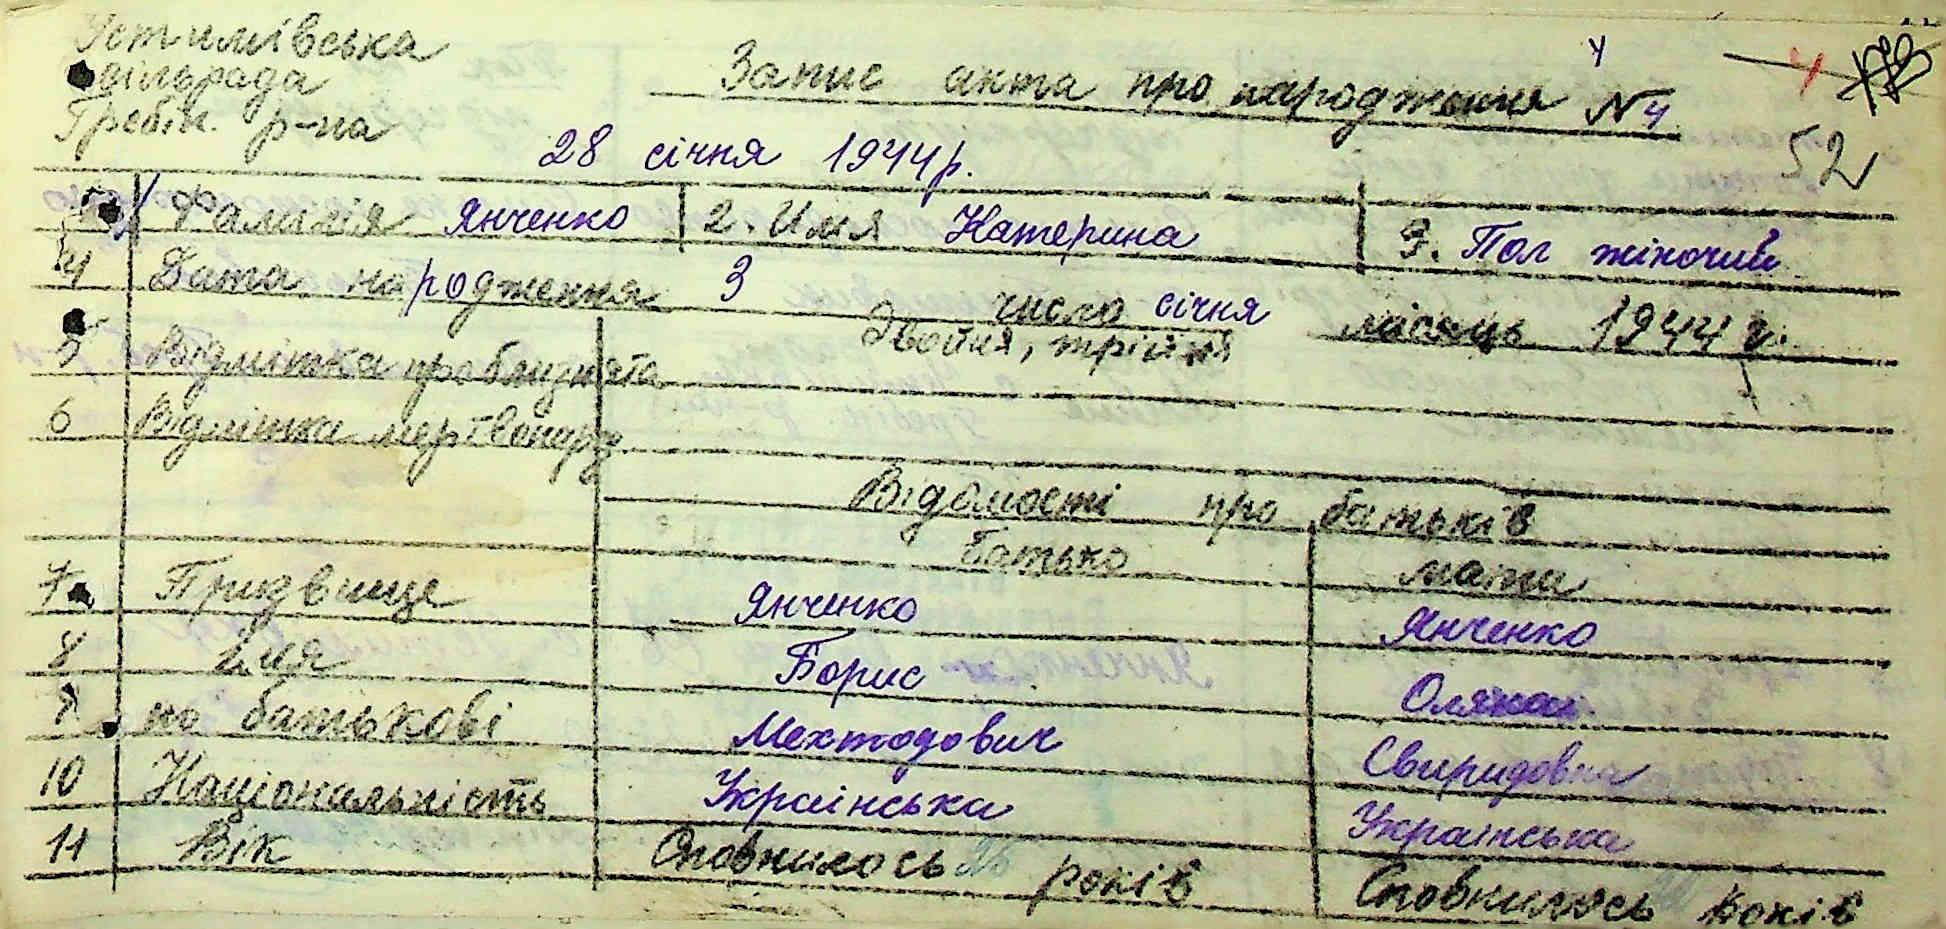 Устимівська
сільрада
Гребін. р-на
Запис акта про народження №4
4
4
52
28 січня 1944р.
1 Фамилія Янченко 2. Имя Катерина 3. Пол жіночий
4 Дата народження 3 число січня місяць 1944 г.
5 Відмітка про близнята Двойня, трійня
6 Відмітка мертвонар
Відомості про батьків
батько мати
7 Призвище Янченко Янченко
8 Імя Борис Оляна
9 по батькові Мехтодович Свиридовна
10 Національність Українська Українська
11 Вік Сповнилось років Сповнилось років